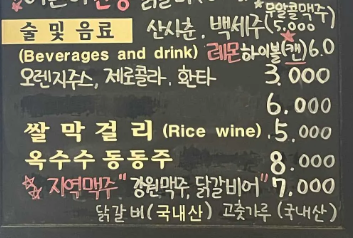 무알콜맥주
술 및 음료 산사춘, 백세주(5,000
(Beverages and drink) 레몬하이볼(캔)6.0
오렌지주스, 제로콜라, 환타 3,000
6,000
쌀 막 걸 리 (Rice wine) 5,000
옥수수 동동주 8,000
지역맥주 "강원맥주, 닭갈비어" 7,000
닭갈비(국내산) 고춧가루(국내산)